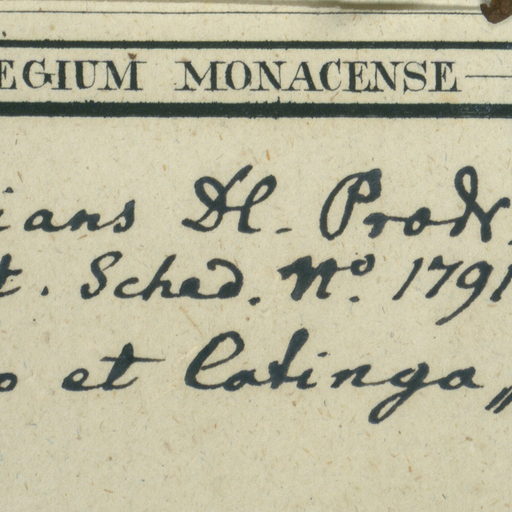 EGIUM MONACENSE
ians Dl. Prodr.
t. Sched. No. 1791
o et Catinga„